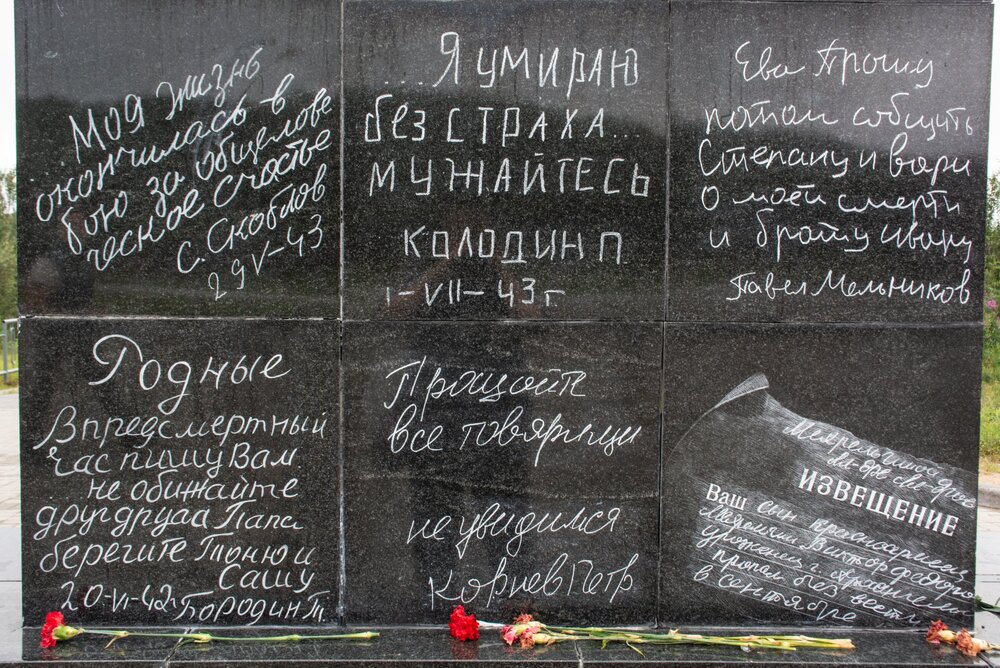 Моя жизнь
окончилась в
бою за общелове
ческое счастье
С. Скоблов
29 V-43
...Я УМИРАЮ
БЕЗ СТРАХА...
МУЖАЙТЕСЬ
КОЛОДИН П
1-VII-43г
Ева Прошу
потом собщить
Степану и вари
О моей смерти
и брату ивану
Павел Мельников
Родные
В предсмертный
час пишу Вам.
не обижайте
друг друга Папа
берегите Тоню и
Сашу
20-VI-42г Бородин Т.
Прощайте
все товарищи
не увидимся
Корнев Пётр
ИЗВЕЩЕНИЕ
Ваш сын красноармеец
Виктор Федоро
уроженец г.
пропал без вести
в сентябре